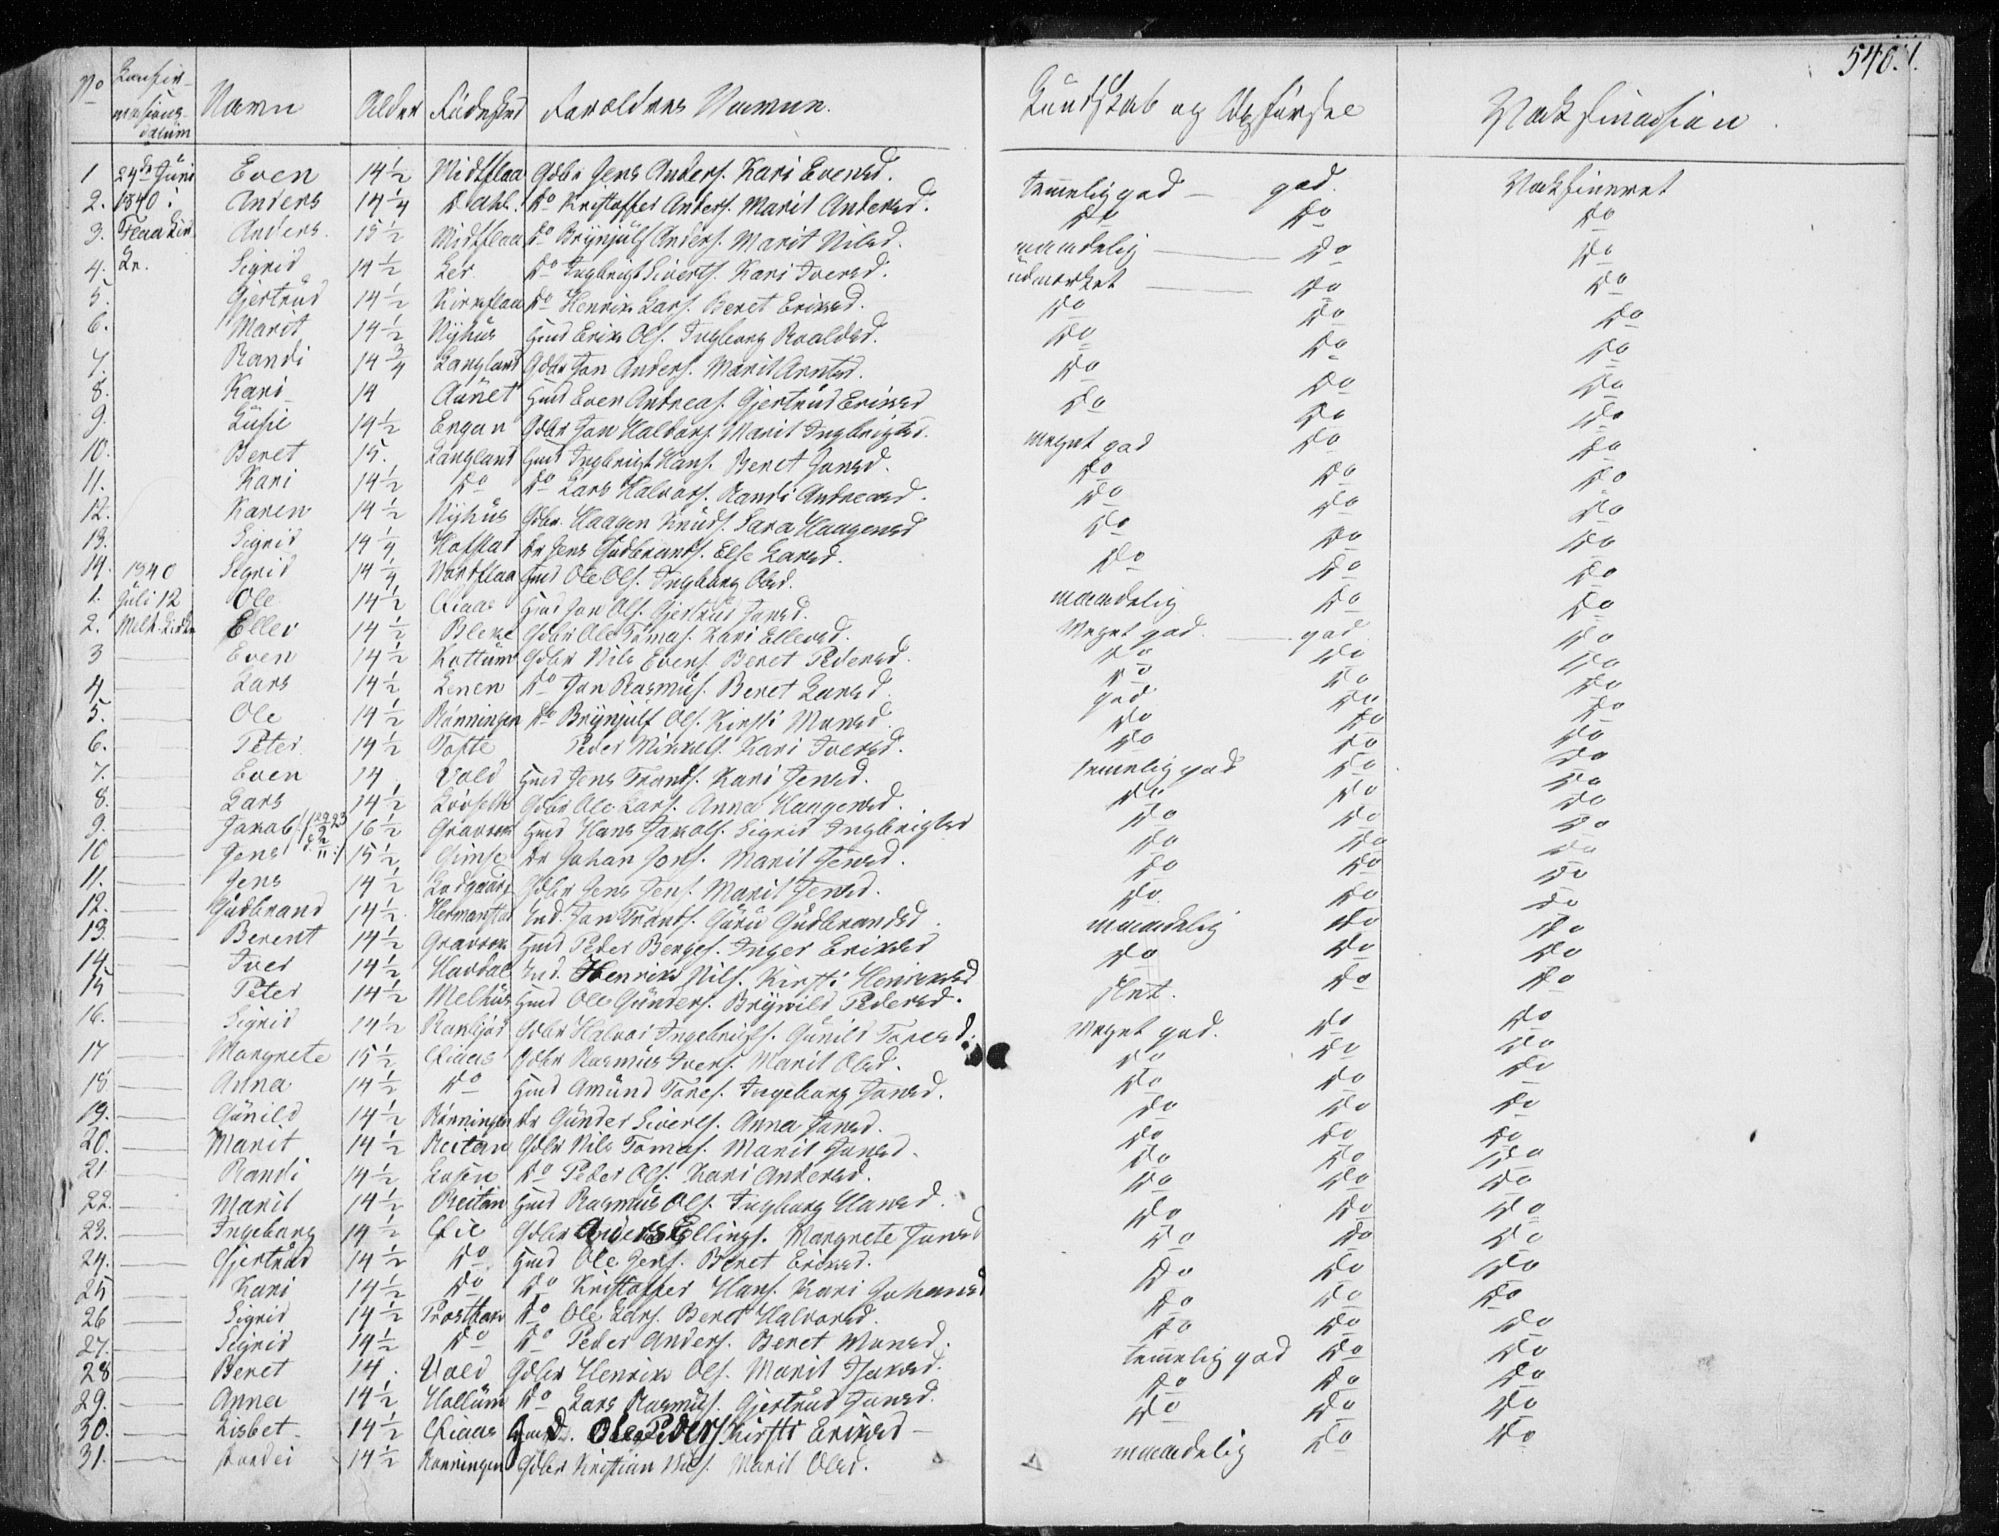 540. 1.
No Konfirmasions-datum Navn Alder Födested Forældres Namne. Kundskab og Opförsel Vaksinasion.
1 24de Juni Even 14 1/2 Midtflaa Gdbr Jens Anders. Kari Evensd. temelig god — god. Vaksineret
2. 1840 i Anders 14 1/4 Dahl. Do Kristoffer Anders. Marit Andersd. Do Do Do
3. Flaa Kir- Anders. 15 1/2 Midtflaa Do Brynjülf Anders. Marit Nilsd. maadelig — Do Do
4. ke. Sigrid 14 1/2 Ler Do Ingbrigt Siverts. Kari Iversd. üdmerket — Do Do
5. Gjertrüd 14 1/2 Kirkflaa Do Henrik Lars. Beret Eriksd. Do Do Do
6. Marit 14 1/2 Nyhüs Hmd Erik Ols. Ingborg Roaldsd. Do Do Do
7. Randi 14 3/4 Langland Gdbr Jon Anders. Marit Arntsd. Do Do Do
8. Kari 14 Aünet Hmd Even Andreas. Gjertrüd Eriksd Do Do Do
9. Lüsie 14 1/2 Engan Gdbr Jon Haldors. Marit Ingbrigtsd. meget god Do Do
10. Beret 15. Langland Hmd Ingbrigt Hans. Beret Jonsd. Do Do Do
11. Kari 14 1/2 Do Do Lars Halvors. Randi Andreasd. Do Do Do
12. Karen 14 1/2 Nyhüs Gdbr. Haagen Knüds. Sara Haagensd Do Do Do
13. Sigrid 14 1/4 Hofstad Do Jens Gudbrands. Else Larsd. Do Do Do
14. 1840 Sigrid 14 1/4 Nordflaa Hmd Ole Ols. Ingborg Olsd. Do
1. Juli 12 Ole 14 1/2 Hmd Jon Ols. Gjertrüd Jonsd. maadelig Do Do
2. Melh. Kirke Eller 14 1/2 Bleke Gdbr Ole Tomas. Kari Ellevsd. Meget god. — god Do
3 — Even 14 1/2 Kattüm Gdbr Nils Evens. Beret Pedersd. Do Do Do
4 — Lars 14 1/2 Lenen Do Jon Rasmüs. Beret Larsd. Do Do Do
5. — Ole 14 1/2 Rönningen Do Brynjülf Ols. Kirsti Monsd god Do Do
6. — Peter 14 1/2 Tofte Peder Mikkels. Kari Iversd. Do Do Do
7. — Even 14 Vold Hmd Jens Tronds. Kari Jensd. temelig god Do Do
8. — Lars 14 1/2 Gdbr Ole Lars. Anna Haagensd. Do Do Do
9. — Jakob 16 1/2 Gravrok Hmd Hans Jakobs. Sigrid Ingbrigtsd Do Do Do
10 — Jens 15 1/2 Gimse Do Johan Jons. Marit Jensd. Do Do Do
11. — Jens 14 1/2 Gdbr Jens Jens. Marit Jensd. Do Do Do
12. — Gudbrand 14 1/2 Hermanstad Ind. Jon Tronds. Gürü Gudbrandsd. Do Do Do
13. — Berent 14 1/2 Gravrok Hmd Peder Benges. Inger Eriksd maadelig Do Do
14 — Iver 14 1/2 Havdal Ind. Henrik Nils. Kirsti Henriksd Do Do Do
15 — Peter 14 1/2 Melhüs Hmd Ole Günders. Brynild Pedersd. slet. Do Do
16. — Sigrid 14 1/2 Gdbr Halvor Ingebrigts. Günild Toresd. Meget god. Do Do
17 — Margrete 15 1/2 Gdbr Rasmus Ivers. Marit Olsd. Do Do Do
18. — Anna 14 1/2 Do Hmd Amünd Tores. Ingeborg Jonsd. Do Do Do
19. — Günild 14 1/2 Rönningen Do Günder Siverts. Anna Jonsd. Do Do Do
20. — Marit 14 1/2 Reitan Gdbr Nils Tomas. Marit Jonsd. Do Do Do
21 — Randi 14 1/2 Losen Do Peder Ols. Kari Andersd. Do Do Do
22. — Marit 14 1/2 Reitan Hmd Rasmüs Ols. Ingborg Hansd. Do Do Do
23. — Ingeborg 14 1/2 Gdbr Anders Ellings. Margrete Jonsd Do Do Do
24. — Gjertrüd 14 1/2 Do Hmd Ole Jens. Beret Eriksd. Do Do Do
25 — Kari 14 1/2 Do Do Kristoffer Hans. Kari Johansd Do Do Do
26 — Sigrid 14 1/2 Do Ole Lars. Beret Halvorsd. Do Do Do
27. — Sigrid 14 1/2 Do Do Peder Anders. Beret Monsd. Do Do Do
28 — Beret 14. Vold Gdbr Henrik Ols. Marit Isaksd. temelig god Do Do
29. — Anna 14 1/2 Hollüm Do Lars Rasmüs. Gjertrüd Jonsd. Do Do Do
30. — Lisbet 14 1/2 Hmd. Ole Peders. Kirsti Eriksd — Do Do Do
31. — Kordei 14 1/2 Rönningen Gdbr Kristian Nils. Marit Olsd. maadelig Do Do